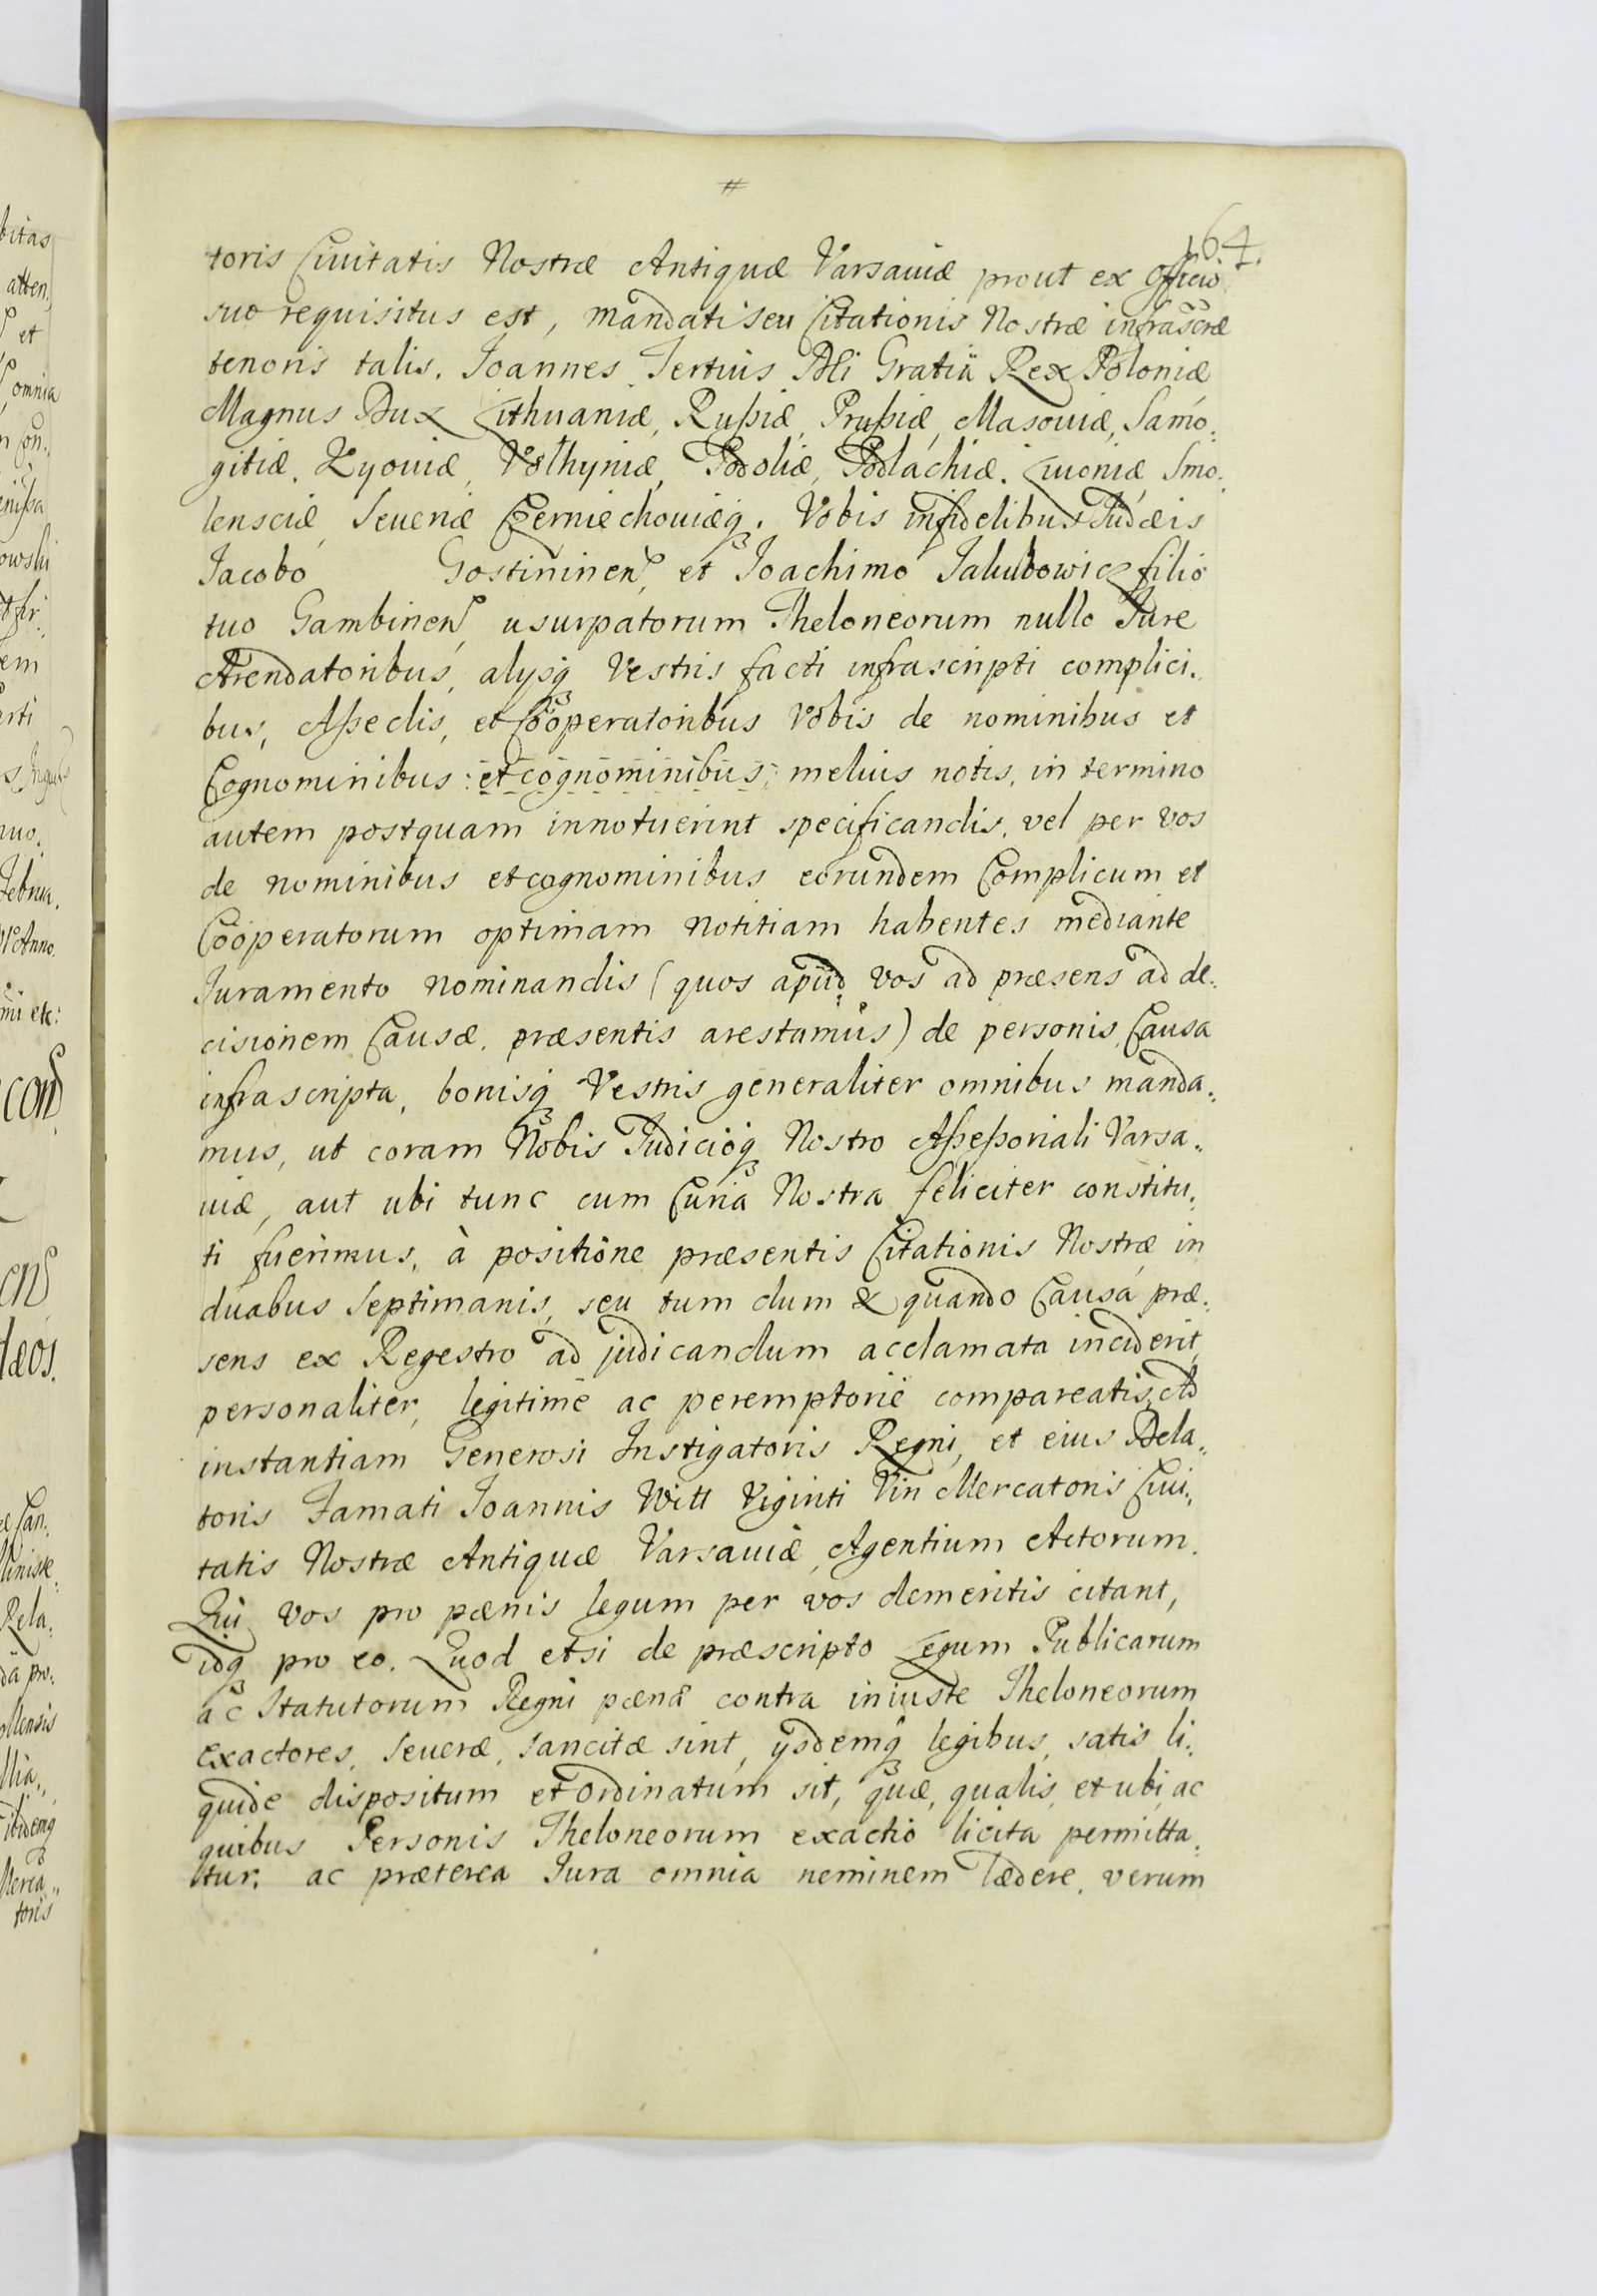 #
164.
toris Ciuitatis Nostræ Antiquæ Varsauiæ prout ex officio
suo requisitus est, mandati seu Citationis Nostræ infrascræ
tenoris talis. Joannes Tertius Dei Gratiâ Rex Poloniæ
Magnus Dux Lithuaniæ, Rußiæ, Prußiæ, Masouiæ, Samo:
gitiæ. Kyouiæ, Volhyniæ, Podoliæ, Podlachiæ. Liuoniæ Smo:
lensciæ, Seueriæ Czerniechouiæq3. Vobis infidelibus Judæis
Jacobo Gostininen, et Joachimo Jakubowicz filio
tuo Gambinen, usurpatorum Theloneorum nullo Jure
Arendatoribus, alÿsq3 Vestris facti infrascripti complici.
bus, Aßeclis, et Cooperatoribus Vobis de nominibus et
Cognominibus : et cognominibus: melius notis, in termino
autem postquam innotuerint specificandis, vel per vos
de nominibus et cognominibus eorundem Complicum et
Cooperatorum optimam notitiam habentes mediante
Juramento nominandis (quos apud vos ad præsens ad de:
cisionem Causæ præsentis arestamus) de personis, Causa
infrascripta, bonisq3 Vestris generaliter omnibus manda:
mus, ut coram Nobis Judicioq3 Nostro Aßeßoriali Varsa:
uiæ, aut ubi tunc cum Curia Nostra feliciter constitu:
ti fuerimus, à positione præsentis Citationis Nostræ in
duabus Septimanis, seu tum dum & quando Causa præ:
sens ex Regestro ad judicandum acclamata inciderit,
personaliter, legitimè ac peremptoriè compareatis, Ad
instantiam Generosi Instigatoris Regni, et eius Dela:
toris Famati Joannis Witt Viginti Viri Mercatoris Ciui:
tatis Nostræ Antiquæ Varsauiæ, Agentium Actorum.
Qui vos pro pœnis legum per vos demeritis citant,
idq3 pro eo. Quod etsi de præscripto Legum Publicarum
ac Statutorum Regni pœnæ contra iniuste Theloneorum
exactores, Seueræ, sancitæ sint, ÿsdemq3 legibus, satis li:
quide dispositum et ordinatum sit, quæ, qualis, et ubi, ac
quibus Personis Theloneorum exactio licita permitta:
tur: ac præterea Jura omnia neminem lædere, verum